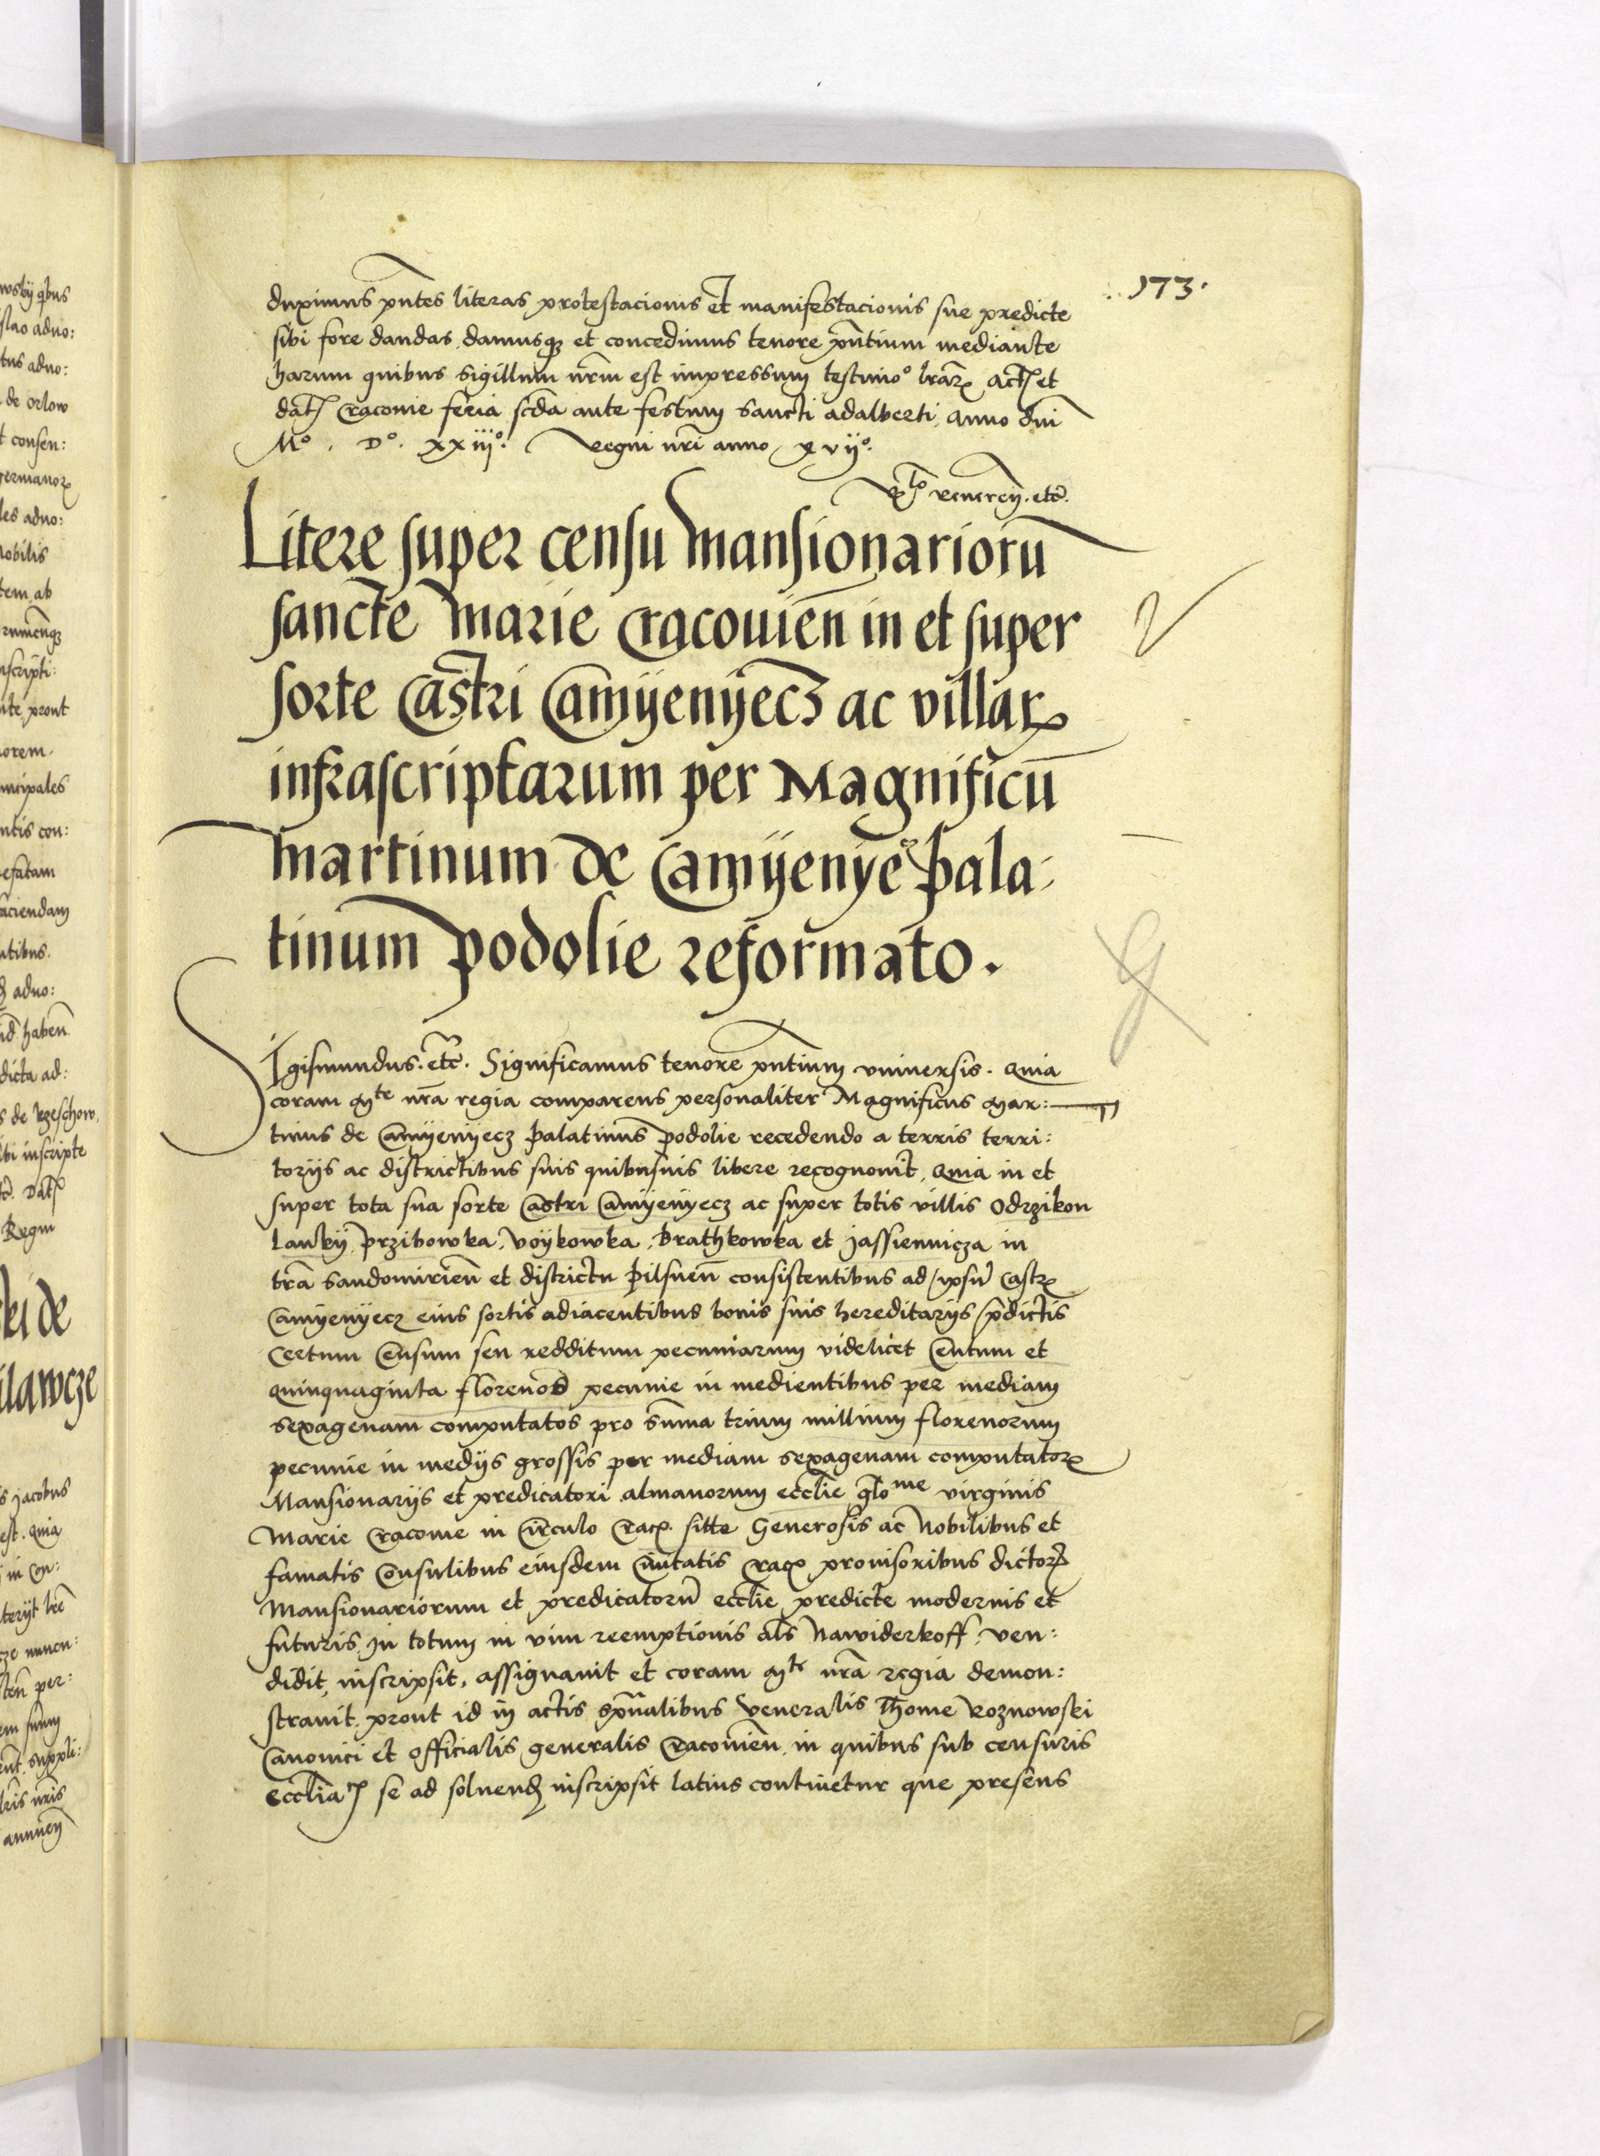 173.
duximus pntes literas protestacionis et manifestacionis sue predicte
sibi fore dandas, damusqz et concedimus tenore pntium mediante
harum quibus sigillum nrm est impressum testimo° lrarz Act et
dat Cracouie feria scda ante festum Sancti adalberti, Anno dni
M°. D°. xxiij°. Regni nri anno xvij°.
Rlo Reueren. etc.
Litere super censu Mansionarioru
sancte Marie Cracouien in et super
sorte Castri Camyenyecz ac villarz
infrascriptarum per Magnificu
Martinum de Camyenyecz Pala:
tinum Podolie reformato.
Sigismundus. etc. Significamus tenore pntium vniuersis. Quia
coram Mte nra regia comparens personaliter Magnificus Mar:
tinus de Camyenyecz Palatinus Podolie recedendo a terris terri:
torijs ac districtibus suis quibusuis libere recognouit, Quia in et
super tota sua sorte Castri Camyenyecz ac super totis villis Odrzikon
Lanky, Przibowka, Voykowka, Brathkowka et Jassiennicza in
tra Sandomirien et districtu Pilsnen consistentibus ad ipsu Castr
Camyenyecz eius sortis adiacentibus bonis suis hereditarijs pdictis
Certum Censum seu redditum pecuniarum videlicet Centum et
quinquaginta florenos pecunie in medientibus per mediam
sexagenam computatos pro suma trium millium florenorum
pecunie in medijs grossis per mediam sexagenam computatorz
Mansionarijs et predicatori almanorum ecclie glome virginis
Marie Cracouie in Circulo Crac. sitte Generosis ac Nobilibus et
famatis Consulibus eiusdem Ciuitatis Crac prouisoribus dictorz
Mansionariorum et predicatoru ecclie predicte modernis et
futuris, in totum in vim reemptionis als Nawiderkoff, ven:
didit, inscripsit, assignauit et coram Mte nra regia demon:
strauit, prout id in actis spualibus Veneralis Thome Roznowski
Canonici et Officialis generalis Cracouien, in quibus sub censuris
ecclia se ad soluend inscripsit latius continetur que presens